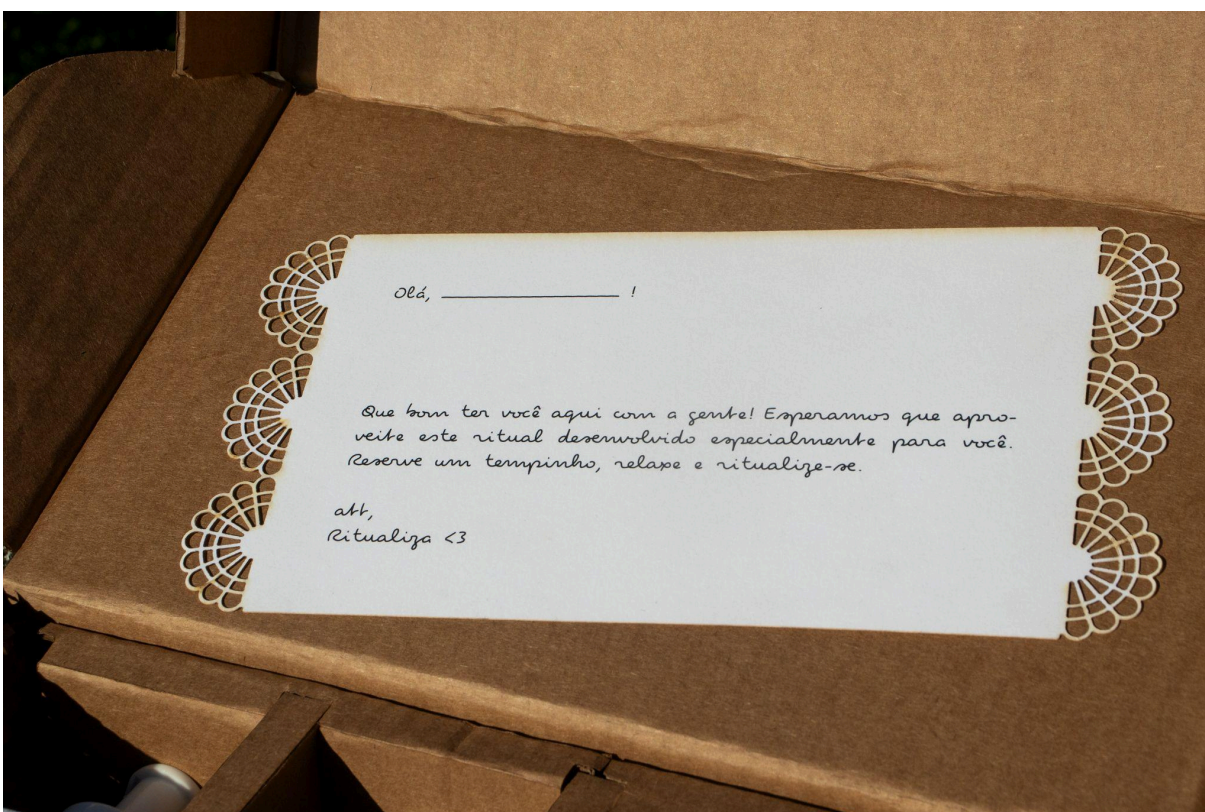 Olá, ______________ !
Que bom ter você aqui com a gente! Esperamos que apro-
veite este ritual desenvolvido especialmente para você.
Reserve um tempinho, relaxe e ritualize-se.
att,
Ritualiza <3